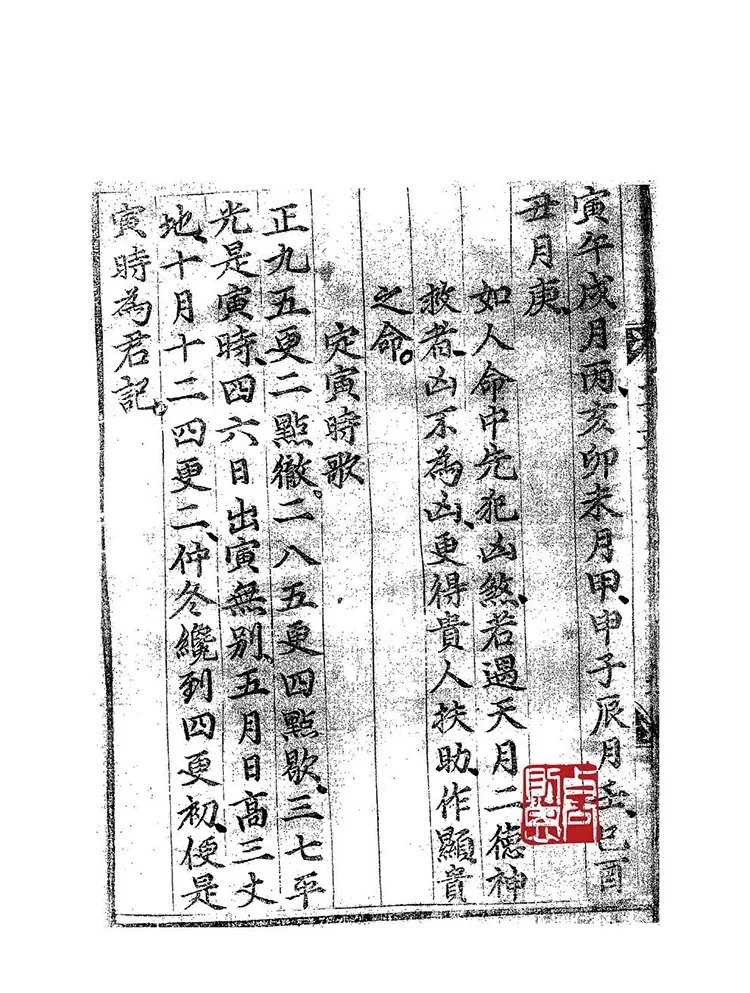 寅午戌月丙、亥卯未月甲、申子辰月壬、巳酉
丑月庚、
如人命中先犯凶煞、若遇天月二德神
救者、凶不為凶、更得貴人扶助、作顯貴
之命。
定寅時歌
正九五更二點徹。二八五更四點歇、三七平
光是寅時、四六日出寅無別、五月日高三丈
地、十月十二四更二、仲冬纔到四更初、便是
寅時為君記。